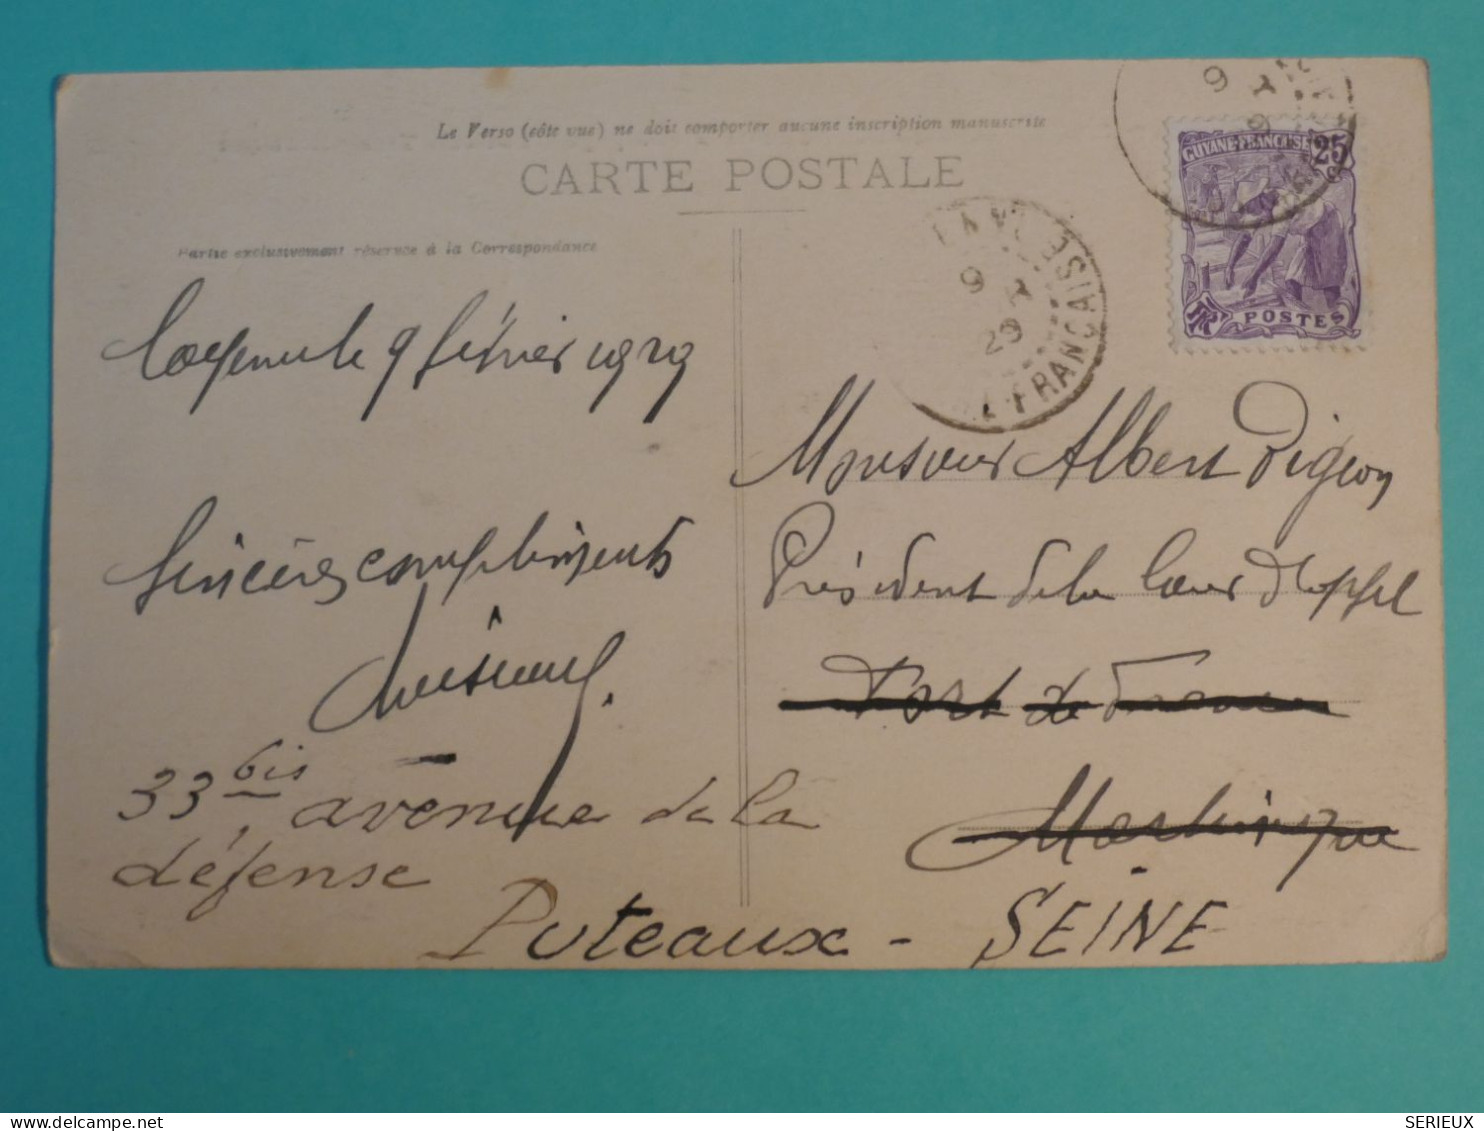 Le Verso (côté vue) ne doit comporter aucune inscription manuscrite
CARTE POSTALE
Partie exclusivement réservée à la Correspondance
GUYANE FRANÇAISE 25
POSTES
9
29
FRANÇAISE
9
Cayenne le 9 février 1929
Sincères compliments
Monsieur Albert Pigeon
Président de la Cour d'appel
Fort de France
Martinique
33 bis avenue de la
défense
Puteaux - SEINE
SERIEUX